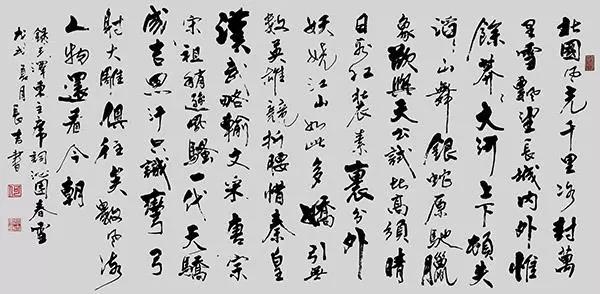 北國風光千里冰封萬
里雪飄望長城内外惟
餘莽莽大河上下頓失
滔滔山舞銀蛇原馳臘
象欲與天公試比高須晴
日看紅裝素裹分外
妖嬈江山如此多嬌引無
數英雄競折腰惜秦皇
漢武略輸文采唐宗
宋祖稍遜風騷一代天驕
成吉思汗只識彎弓
射大雕俱往矣數風流
人物還看今朝
錄毛澤東主席詞沁園春雪
戊戌夏月長吉書